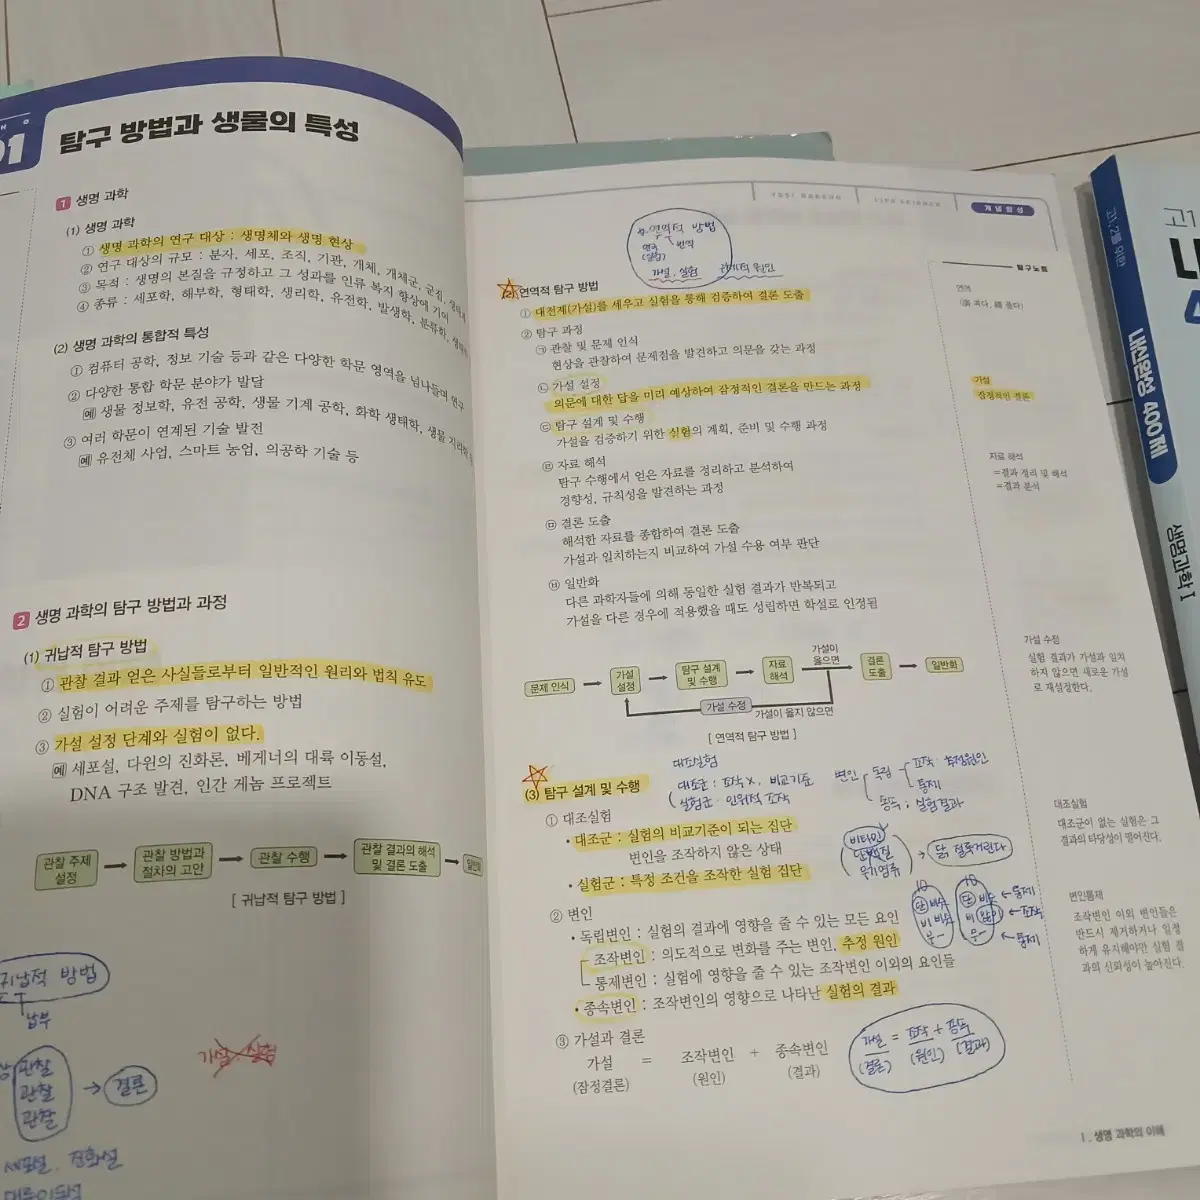 01
탐구 방법과 생물의 특성
1 생명 과학
(1) 생명 과학
① 생명 과학의 연구 대상 : 생명체와 생명 현상
② 연구 대상의 규모 : 분자, 세포, 조직, 기관, 개체, 개체군, 군집,
③ 목적 : 생명의 본질을 규정하고 그 성과를 인류 복지 향상에 기여
④ 종류 : 세포학, 해부학, 형태학, 생리학, 유전학, 발생학, 분류학,
(2) 생명 과학의 통합적 특성
① 컴퓨터 공학, 정보 기술 등과 같은 다양한 학문 영역을 넘나들며 연구
② 다양한 통합 학문 분야가 발달
예 생물 정보학, 유전 공학, 생물 기계 공학, 화학 생태학, 생물
③ 여러 학문이 연계된 기술 발전
예 유전체 사업, 스마트 농업, 의공학 기술 등
2 생명 과학의 탐구 방법과 과정
(1) 귀납적 탐구 방법
① 관찰 결과 얻은 사실들로부터 일반적인 원리와 법칙 유도
② 실험이 어려운 주제를 탐구하는 방법
③ 가설 설정 단계와 실험이 없다.
예 세포설, 다윈의 진화론, 베게너의 대륙 이동설,
DNA 구조 발견, 인간 게놈 프로젝트
관찰 주제 설정 → 관찰 방법과 절차의 고안 → 관찰 수행 → 관찰 결과의 해석 및 결론 도출 → 일반화
[ 귀납적 탐구 방법 ]
귀납적 방법
납부
관찰
관찰
관찰
→ 결론
가설, 실험
세포설, 진화설
대륙이동설
LIFE SCIENCE
개념완성
연역적 방법
연구
(실험)
번역
가설, 실험
연역적 탐구 방법
① 대전제(가설)를 세우고 실험을 통해 검증하여 결론 도출
② 탐구 과정
㉠ 관찰 및 문제 인식
현상을 관찰하여 문제점을 발견하고 의문을 갖는 과정
㉡ 가설 설정
의문에 대한 답을 미리 예상하여 잠정적인 결론을 만드는 과정
㉢ 탐구 설계 및 수행
가설을 검증하기 위한 실험의 계획, 준비 및 수행 과정
㉣ 자료 해석
탐구 수행에서 얻은 자료를 정리하고 분석하여
경향성, 규칙성을 발견하는 과정
㉤ 결론 도출
해석한 자료를 종합하여 결론 도출
가설과 일치하는지 비교하여 가설 수용 여부 판단
㉥ 일반화
다른 과학자들에 의해 동일한 실험 결과가 반복되고
가설을 다른 경우에 적용했을 때도 성립하면 학설로 인정됨
문제 인식 → 가설 설정 → 탐구 설계 및 수행 → 자료 해석 → 결론 도출 → 일반화
가설이 옳으면
가설 수정
가설이 옳지 않으면
[ 연역적 탐구 방법 ]
(3) 탐구 설계 및 수행
대조실험
대조군 : 조작 X, 비교기준
실험군 : 인위적 조작
변인
독립
조작 : 추정원인
통제
종속 : 실험결과
① 대조실험
• 대조군 : 실험의 비교기준이 되는 집단
변인을 조작하지 않은 상태
• 실험군 : 특정 조건을 조작한 실험 집단
비타민
단백질
무기염류
→ 닭 절뚝거린다
② 변인
• 독립변인 : 실험의 결과에 영향을 줄 수 있는 모든 요인
조작변인 : 의도적으로 변화를 주는 변인, 추정 원인
통제변인 : 실험에 영향을 줄 수 있는 조작변인 이외의 요인들
• 종속변인 : 조작변인의 영향으로 나타난 실험의 결과
← 통제
← 조작
← 통제
③ 가설과 결론
가설 = 조작변인 + 종속변인
(잠정결론) (원인) (결과)
가설 = 조작 + 종속
(결론) (원인) (결과)
탐구노트
연역
가설
잠정적인 결론
자료 해석
=결과 정리 및 해석
=결과 분석
가설 수정
실험 결과가 가설과 일치
하지 않으면 새로운 가설
로 재설정한다.
대조실험
대조군이 없는 실험은 그
결과의 타당성이 떨어진다.
변인통제
조작변인 이외 변인들은
반드시 제거하거나 일정
하게 유지해야만 실험 결
과의 신뢰성이 높아진다.
Ⅰ. 생명 과학의 이해
고1·2를 위한
내신완성 400제
생명과학Ⅰ